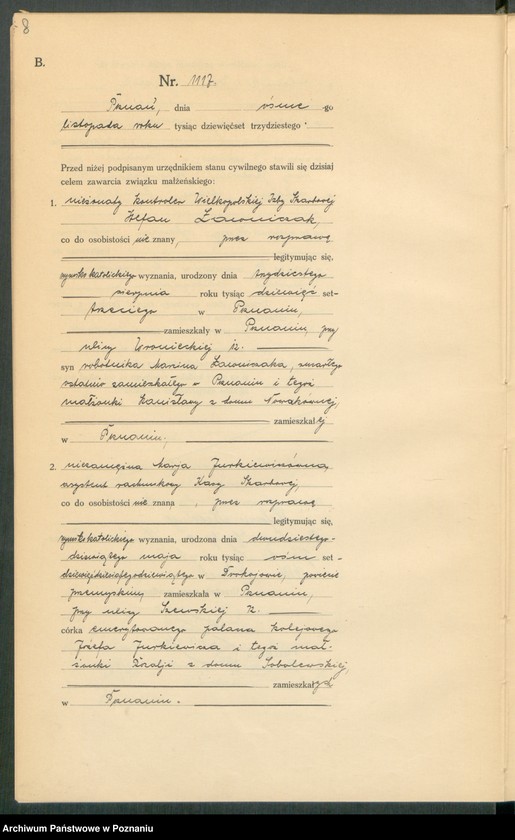 8
B.
Nr. 1117.
Poznań, dnia ósme go
listopada roku tysiąc dziewięćset trzydziestego
Przed niżej podpisanym urzędnikiem stanu cywilnego stawili się dzisiaj
celem zawarcia związku małżeńskiego:
1. nieżonaty kontroler Wielkopolskiej Izby Skarbowej
Stefan Ławniczak,
co do osobistości nie znany, przez rozprawę
legitymując się,
rzymsko katolickiego wyznania, urodzony dnia trzydziestego
sierpnia roku tysiąc dziewięć set-
trzeciego w Poznaniu,
zamieszkały w Poznaniu, przy
ulicy Wronieckiej 12.
syn robotnika Marcina Ławniczaka, zmarłego
ostatnio zamieszkałego w Poznaniu i tegoż
małżonki Stanisławy z domu Nowakównej,
zamieszkałej
w Poznaniu,
2. niezamężna Marja Jurkiewiczówna
asystent rachunkowy Kasy Skarbowej,
co do osobistości nie znana, przez rozprawę
legitymując się,
rzymsko katolickiego wyznania, urodzona dnia dwudziestego-
dziewiątego maja roku tysiąc ośm set -
dziewięćdziesiątego dziewiątego w Prokojowie, powiecie
przemyskim, zamieszkała w Poznaniu,
przy ulicy Szewskiej 12.
córka emerytowanego palacza kolejowego
Józefa Jurkiewicza i tegoż mał-
żonki Rozalji z domu Sobolewskiej,
zamieszkałych
w Poznaniu.
Archiwum Państwowe w Poznaniu